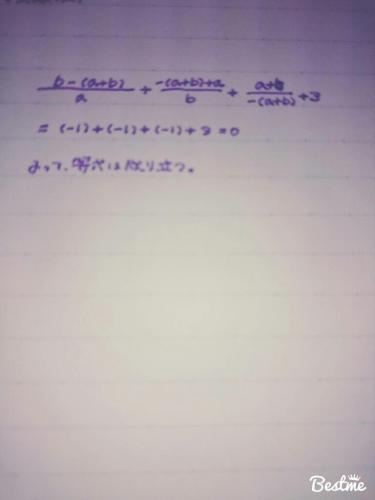 b-(a+b)/a + -(a+b)+a/b + a+b/-(a+b) +3
= (-1)+(-1)+(-1)+3=0
よって、等式は成り立つ。
Bestme